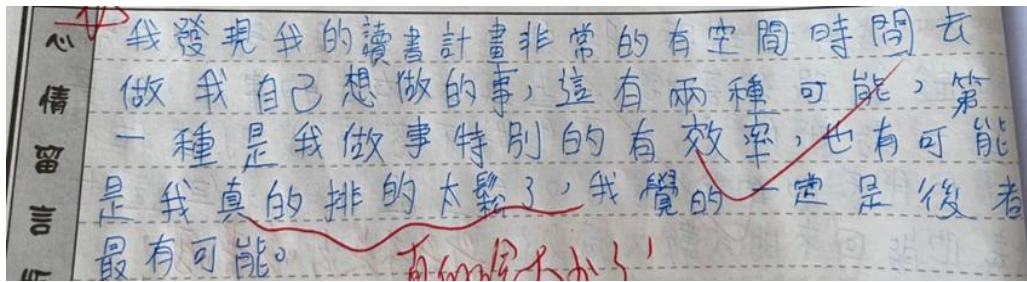 心情留言
我發現我的讀書計畫非常的有空間時間去
做我自己想做的事，這有兩種可能，第
一種是我做事特別的有效率，也有可能
是我真的排的太鬆了，我覺的一定是後者
最有可能。
真的